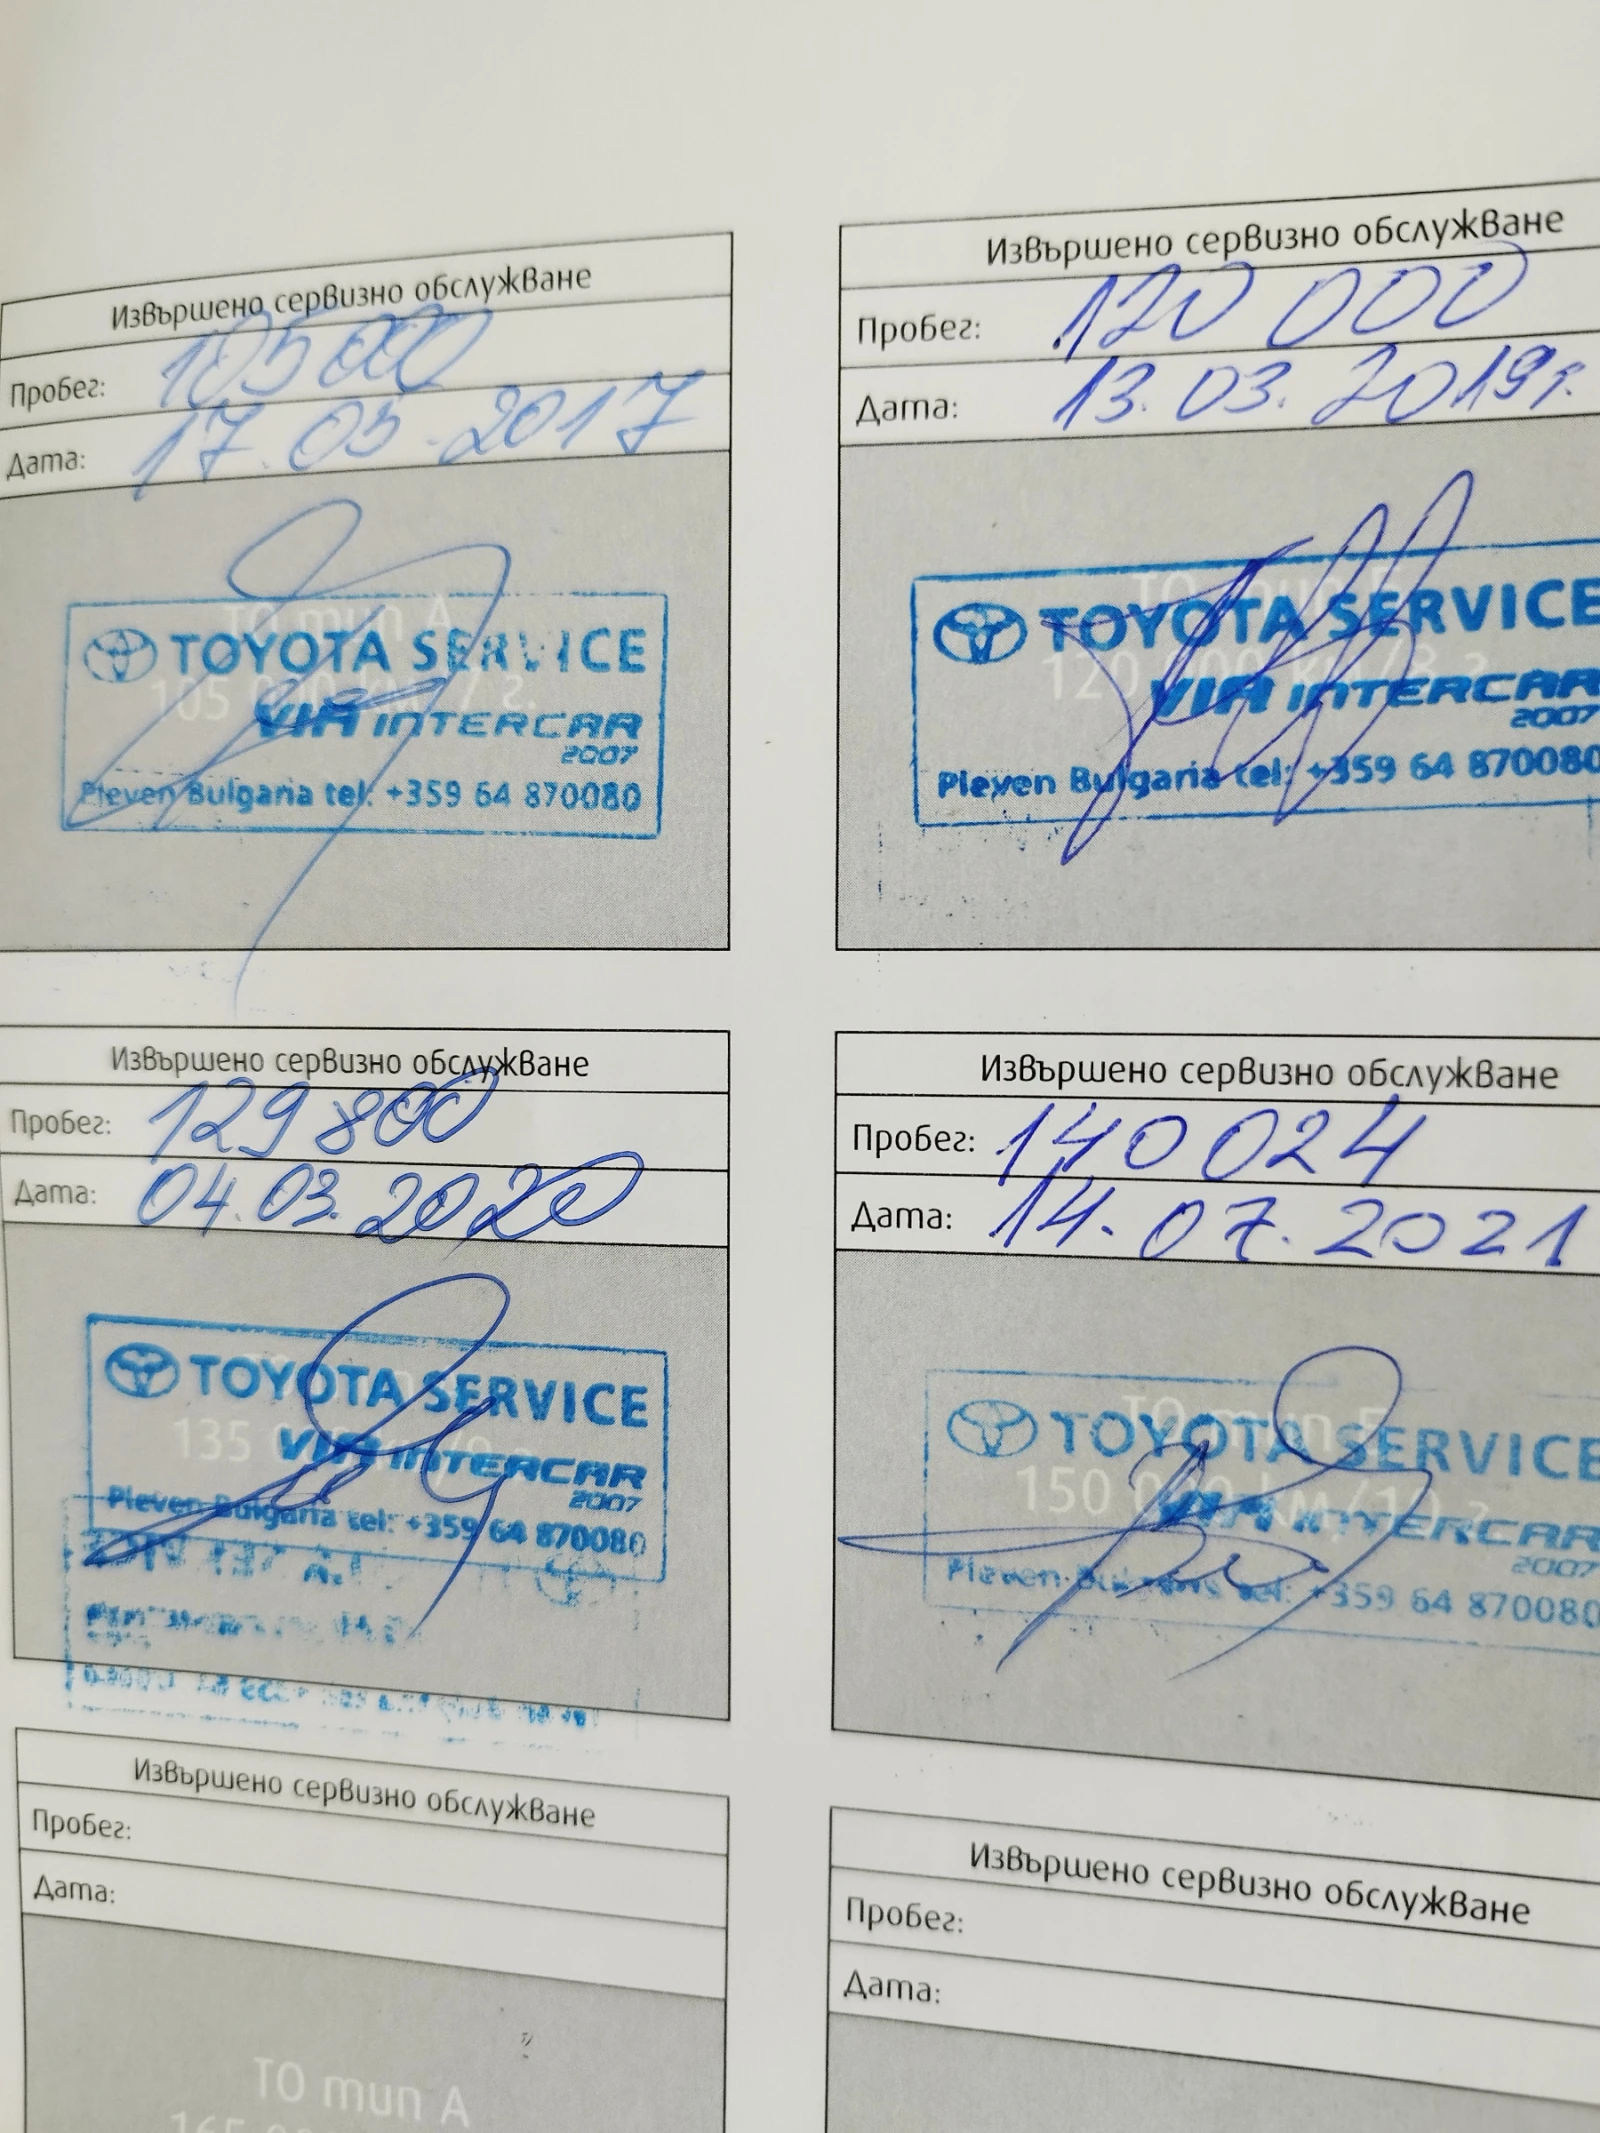 Извършено сервизно обслужване
Пробег: 105000
Дата: 17.05.2017
ТО тип А
105 000 км / г.
TOYOTA SERVICE
VIA INTERCAR
2007
Pleven Bulgaria tel: +359 64 870080
Извършено сервизно обслужване
Пробег: 120 000
Дата: 13.03.2019г.
ТО тип
120 000 км/8 г.
TOYOTA SERVICE
VIA INTERCAR
2007
Pleven Bulgaria tel: +359 64 870080
Извършено сервизно обслужване
Пробег: 129800
Дата: 04.03.2020
135
TOYOTA SERVICE
VIA INTERCAR
2007
Pleven Bulgaria tel: +359 64 870080
Извършено сервизно обслужване
Пробег: 140 024
Дата: 14.07.2021
ТО тип
150 000 км/10 г.
TOYOTA SERVICE
VIA INTERCAR
2007
Pleven Bulgaria tel: +359 64 870080
Извършено сервизно обслужване
Пробег:
Дата:
ТО тип А
Извършено сервизно обслужване
Пробег:
Дата: